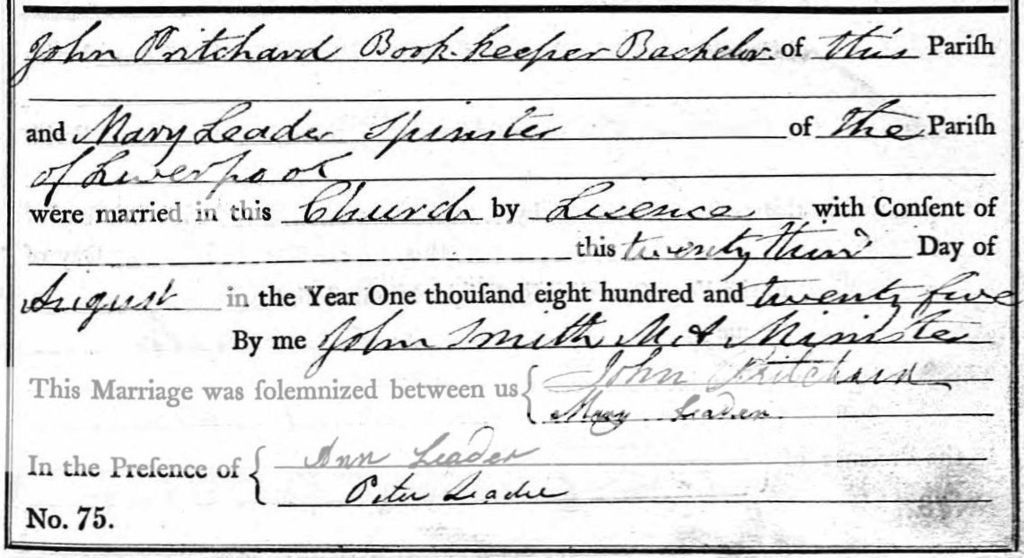 John Pritchard Book-keeper Bachelor of this Pariſh
and Mary Leader Spinster of the Pariſh
of Liverpool
were married in this Church by Lisence with Conſent of
this twenty third Day of
August in the Year One thouſand eight hundred and twenty five
By me John Smith M A Minister
This Marriage was ſolemnized between us { John Pritchard
Mary Leader.
In the Preſence of { Ann Leader
Peter Leader
No. 75.